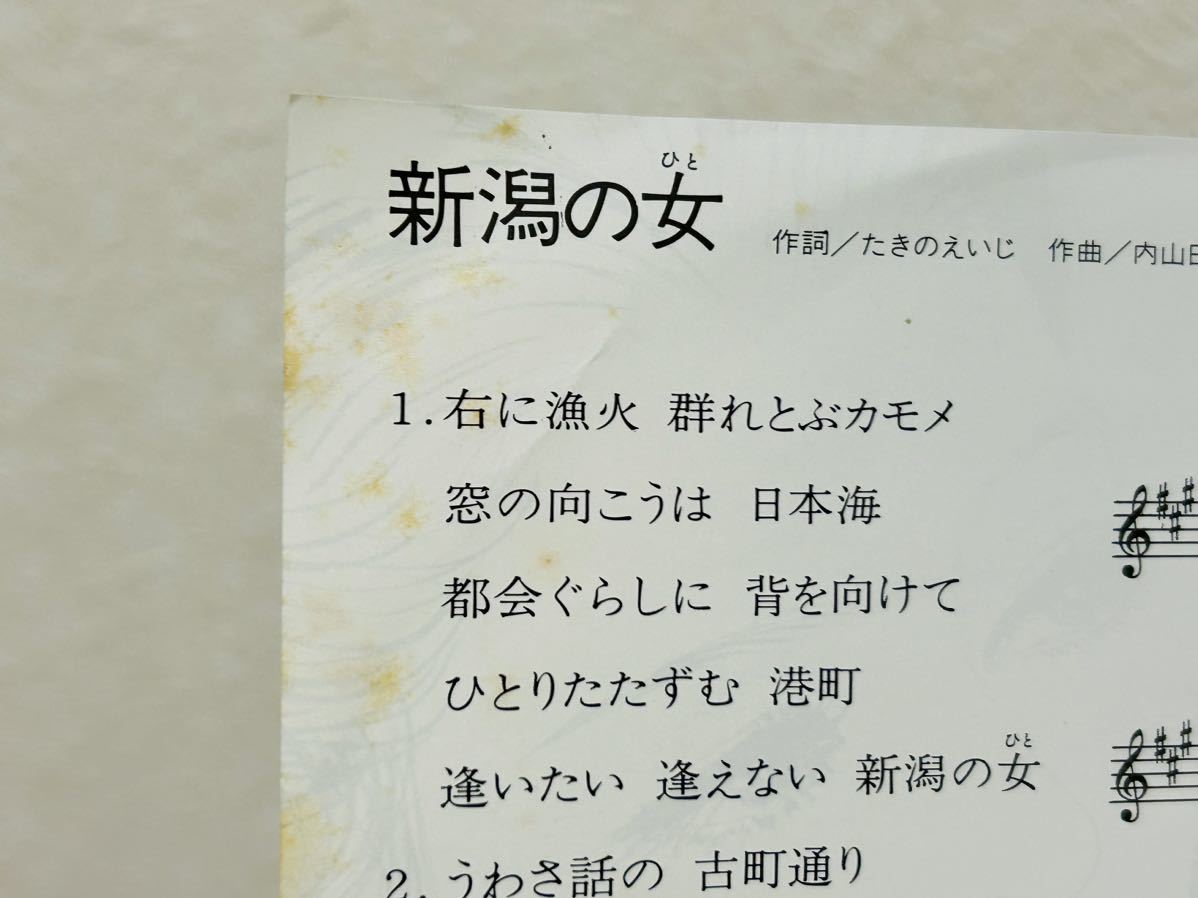 新潟の女
ひと
作詞／たきのえいじ 作曲／内山田
1. 右に漁火 群れとぶカモメ
窓の向こうは 日本海
都会ぐらしに 背を向けて
ひとりたたずむ 港町
逢いたい 逢えない 新潟の女
ひと
2. うわさ話の 古町通り